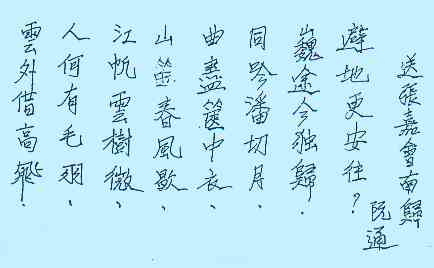 送張嘉會南歸
阮通
避地更安往？
巍途今独歸．
同吟潘切月、
曲盡篋中衣、
山春風歇、
江帆雲樹微、
人何有毛羽、
雲外借高飛．